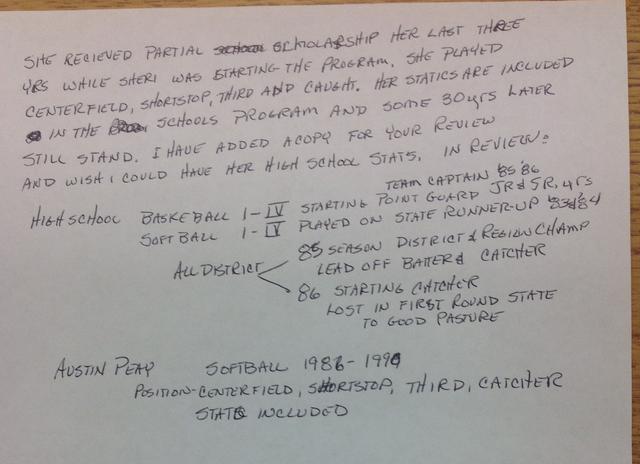 SHE RECIEVED PARTIAL SCHOLARSHIP HER LAST THREE
YRS WHILE SHERI WAS STARTING THE PROGRAM. SHE PLAYED
CENTERFIELD, SHORTSTOP, THIRD AND CAUGHT. HER STATICS ARE INCLUDED
IN THE SCHOOLS PROGRAM AND SOME 30 YRS LATER
STILL STAND. I HAVE ADDED A COPY FOR YOUR REVIEW
AND WISH I COULD HAVE HER HIGH SCHOOL STATS. IN REVIEW:
TEAM CAPTAIN '85 '86
HIGH SCHOOL BASKEBALL 1-IV STARTING POINT GUARD JR & SR. YRS
SOFTBALL 1-IV PLAYED ON STATE RUNNER-UP '83 & '84
ALL DISTRICT 85 SEASON DISTRICT & REGION CHAMP
LEAD OFF BATTER & CATCHER
86 STARTING CATCHER
LOST IN FIRST ROUND STATE
TO GOOD PASTURE
AUSTIN PEAY SOFTBALL 1986-1990
POSITION-CENTERFIELD, SHORTSTOP, THIRD, CATCHER
STATS INCLUDED